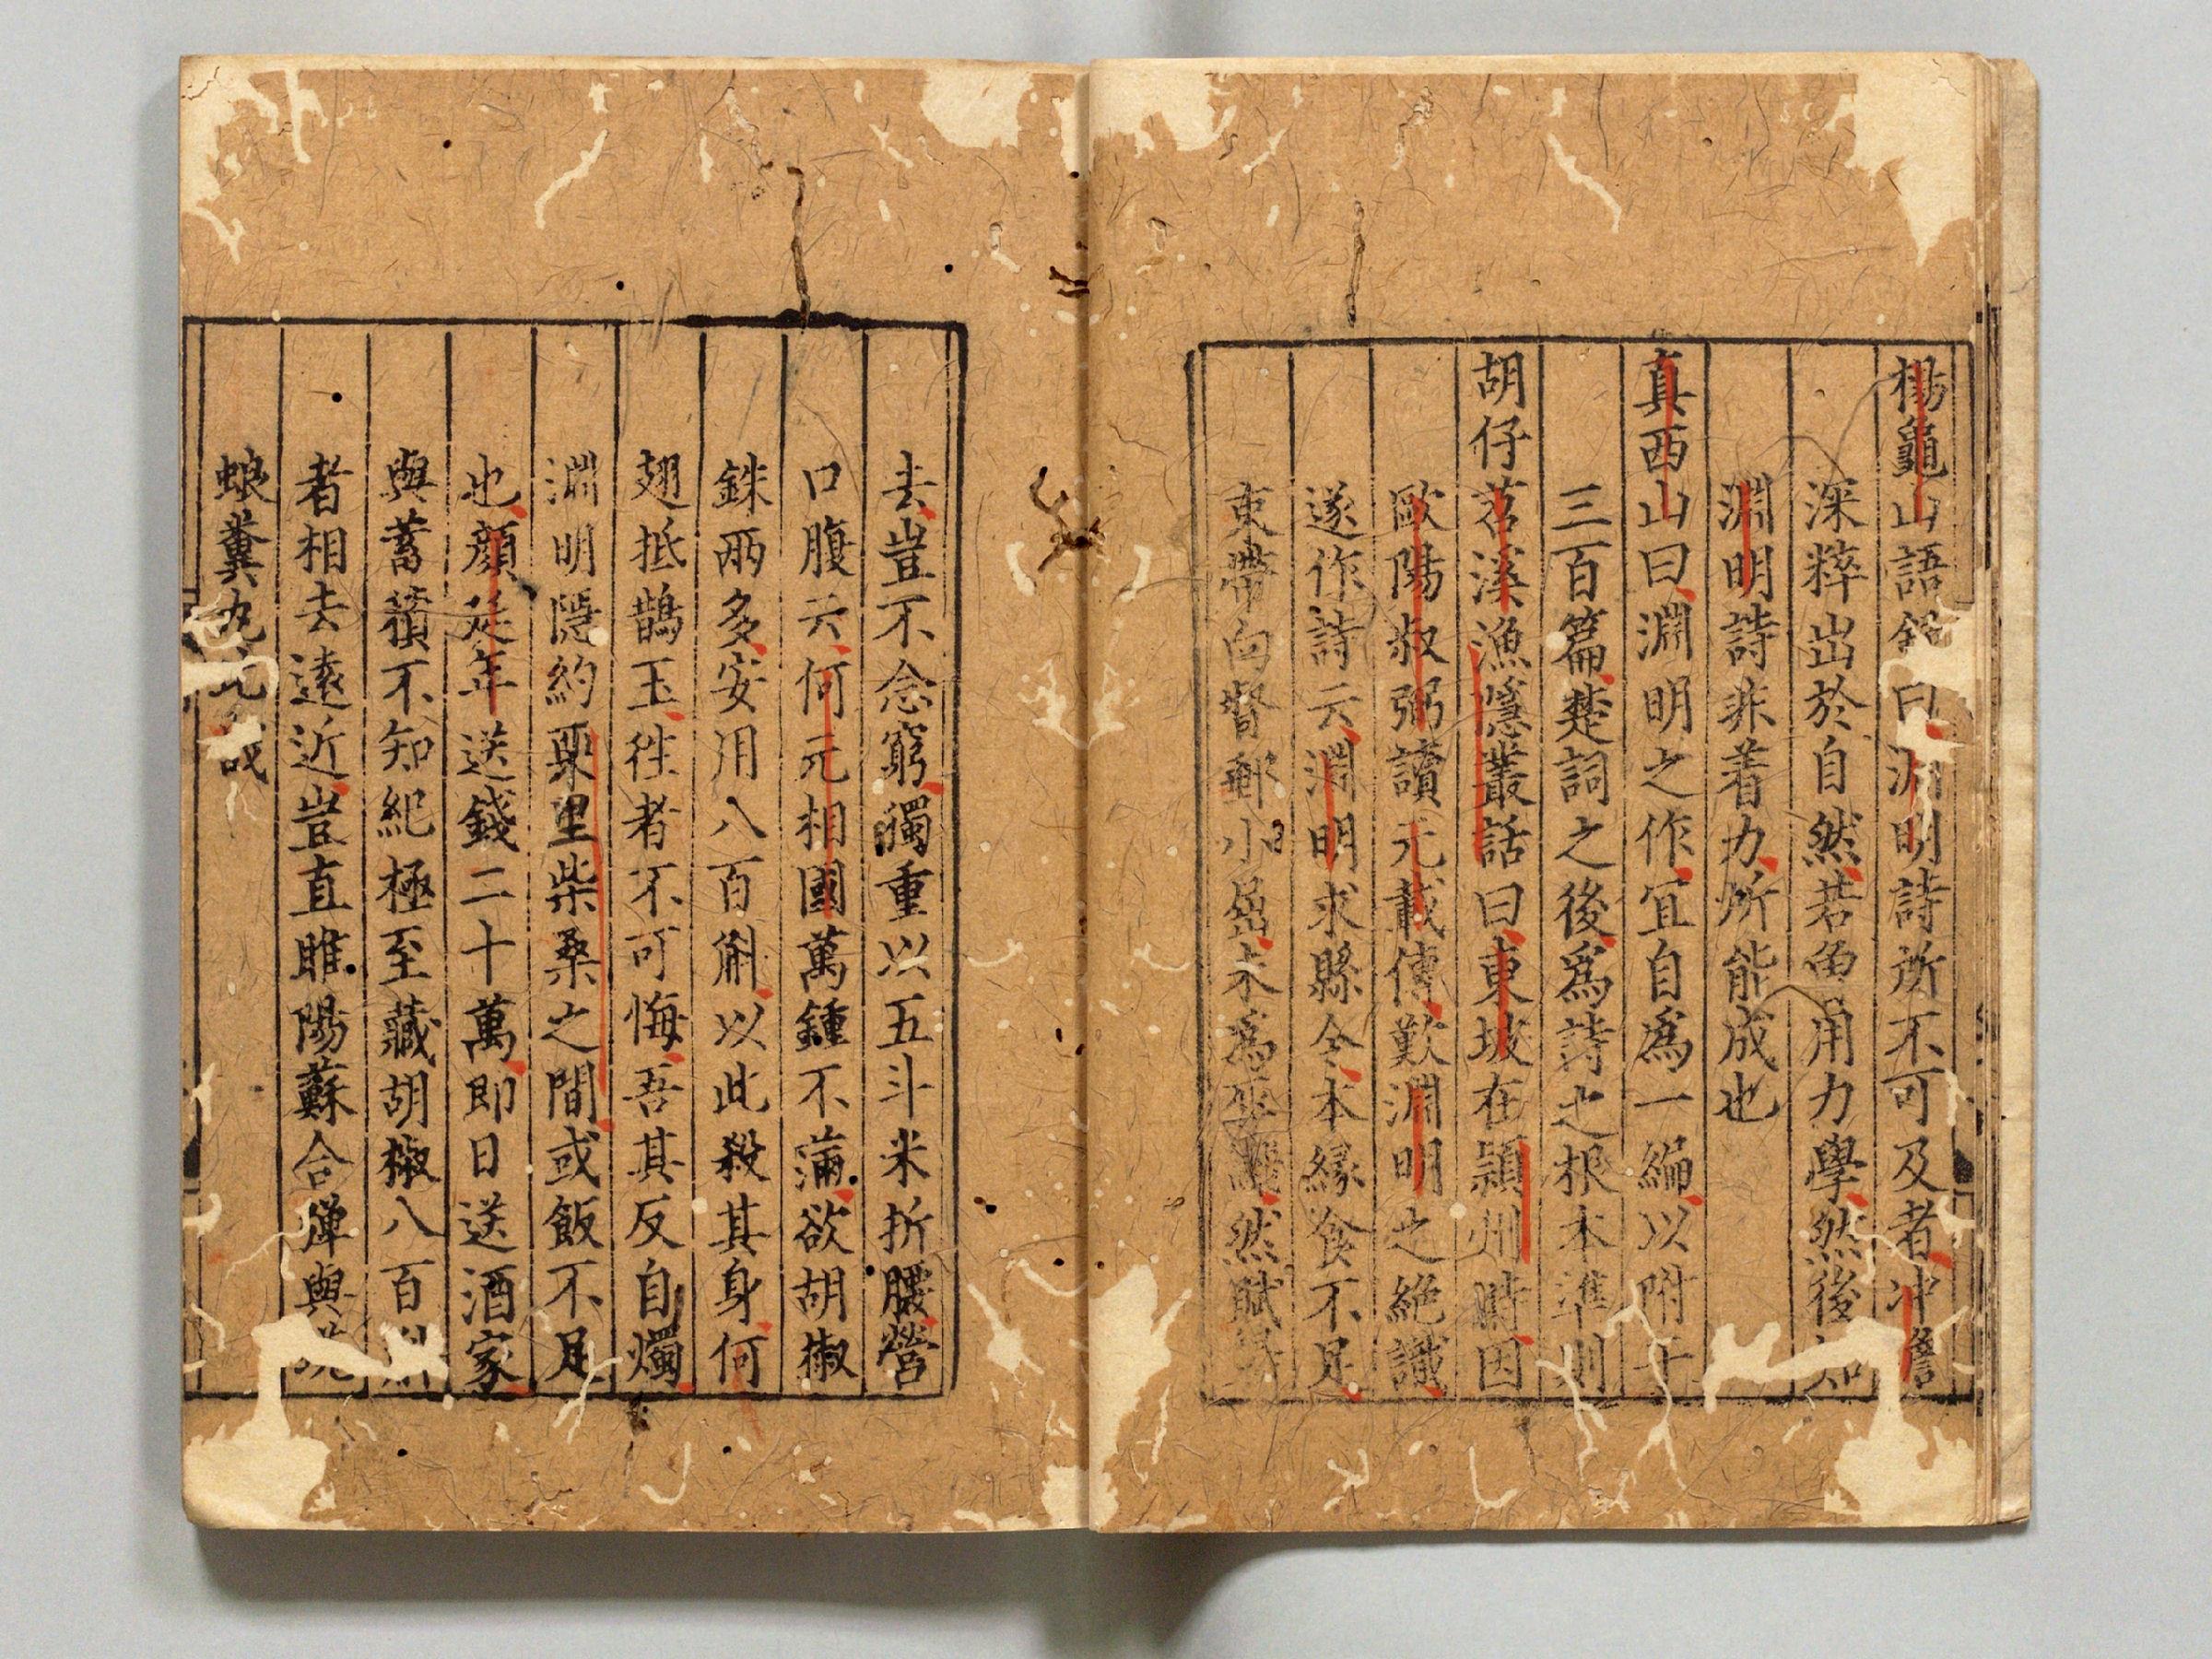 楊龜山語錄曰淵明詩所不可及者冲澹
深粹出於自然若曽用力學然後知
淵明詩非着力所能成也
真西山曰淵明之作冝自為一編以附于
三百篇楚詞之後為詩之根本準則
胡仔苕溪漁隱叢話曰東坡在頴州時因
歐陽叔弼讀元載傳歎淵明之絶識
遂作詩云淵明求縣令本縁食不足
束帶向督郵小屈未為辱翻然賦
去豈不念窮獨重以五斗米折腰營
口腹云何元相國萬鍾不滿欲胡椒
銖兩多安用八百斛以此殺其身何
翅抵鵲玉徃者不可悔吾其反自燭
淵明隱約栗里柴桑之間或飯不足
也顔延年送錢二十萬即日送酒家
與蓄積不知紀極至藏胡椒八百斛
者相去遠近豈直睢陽蘇合彈與
蜋糞丸比哉